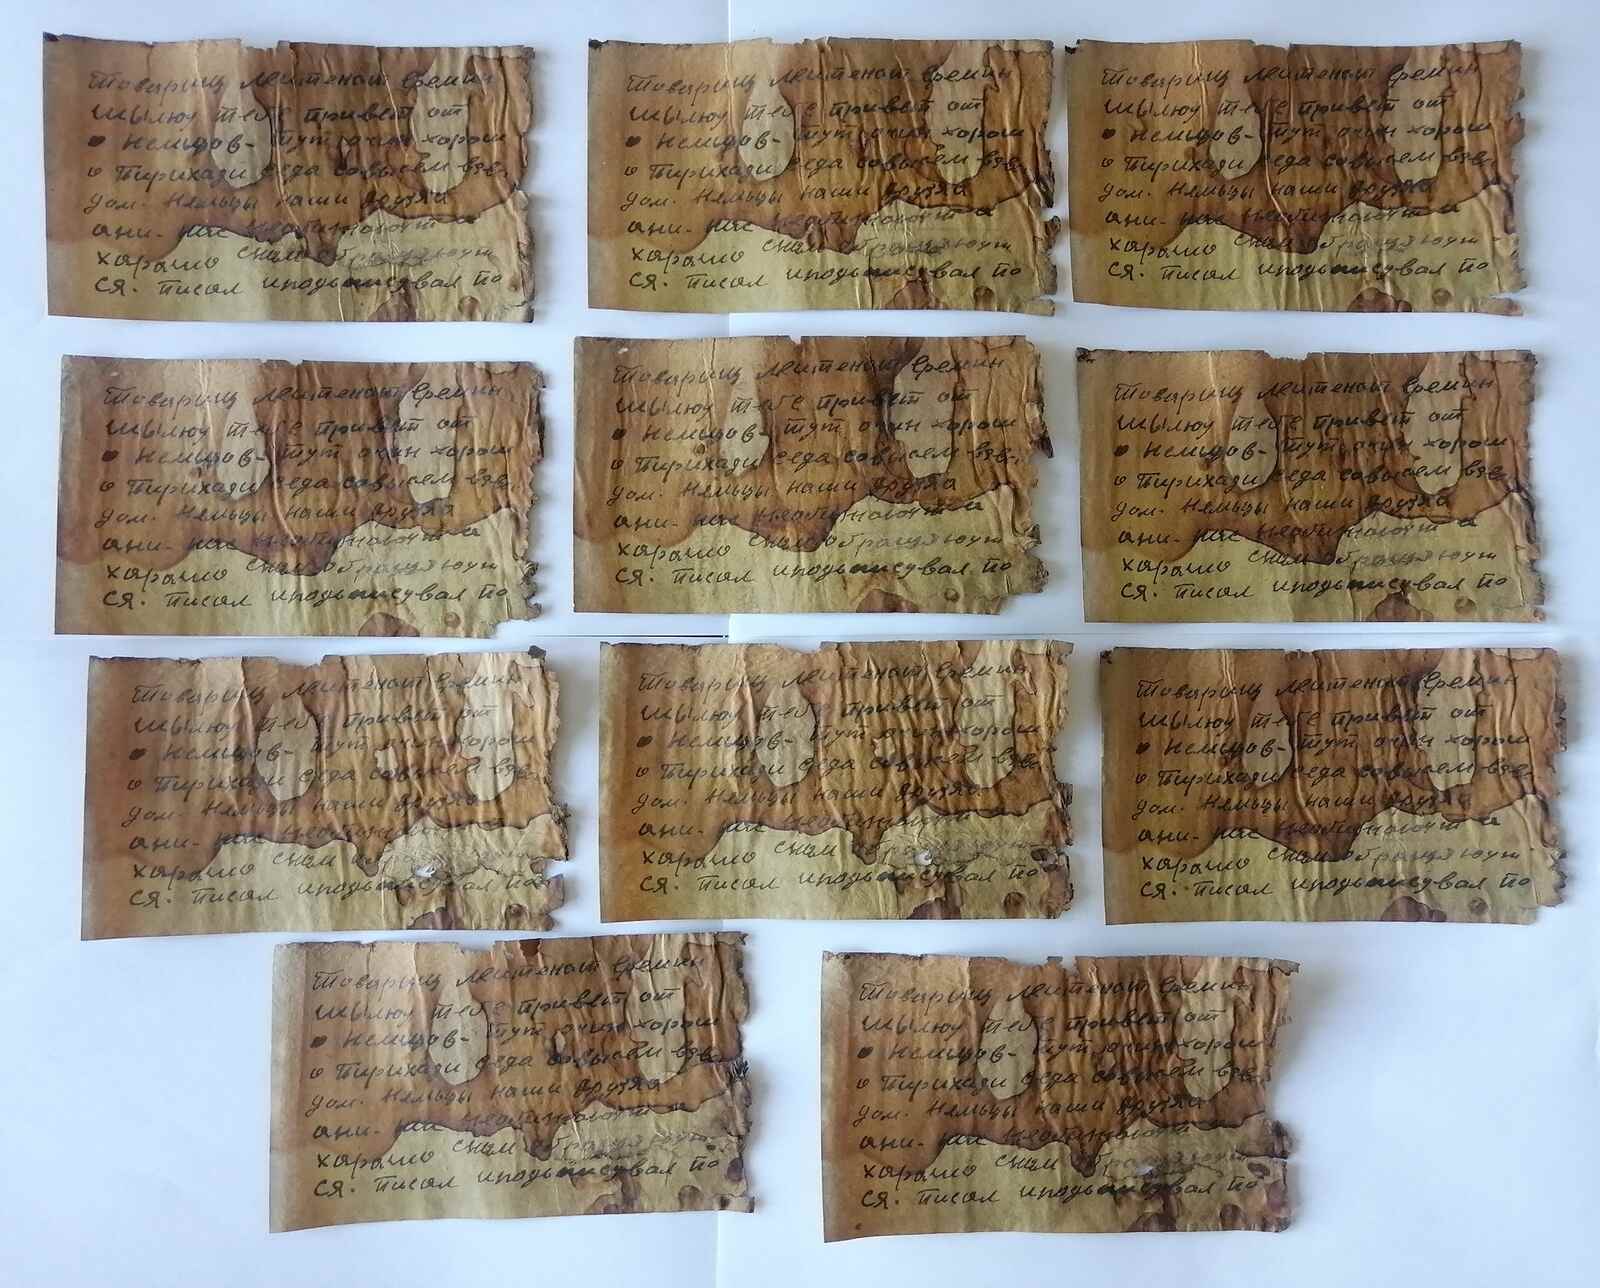 Товарищ Леитенат Еремин
шылюу тебе привет от
немцов- тут очин хорош
о Пирихади седа совысем взво
дом. Немьцы наши друзяа
ани- нас необижоют и
харашо снам обращяюут
ся. писал иподьписувал По
Товарищ Леитенат Еремин
шылюу тебе привет от
немцов- тут очин хорош
о Пирихади седа совысем взво
дом. Немьцы наши друзяа
ани- нас необижоют и
харашо снам обращяюут
ся. писал иподьписувал По
Товарищ Леитенат Еремин
шылюу тебе привет от
немцов- тут очин хорош
о Пирихади седа совысем взво
дом. Немьцы наши друзяа
ани- нас необижоют и
харашо снам обращяюут
ся. писал иподьписувал По
Товарищ Леитенат Еремин
шылюу тебе привет от
немцов- тут очин хорош
о Пирихади седа совысем взво
дом. Немьцы наши друзяа
ани- нас необижоют и
харашо снам обращяюут
ся. писал иподьписувал По
Товарищ Леитенат Еремин
шылюу тебе привет от
немцов- тут очин хорош
о Пирихади седа совысем взво
дом. Немьцы наши друзяа
ани- нас необижоют и
харашо снам обращяюут
ся. писал иподьписувал По
Товарищ Леитенат Еремин
шылюу тебе привет от
немцов- тут очин хорош
о Пирихади седа совысем взво
дом. Немьцы наши друзяа
ани- нас необижоют и
харашо снам обращяюут
ся. писал иподьписувал По
Товарищ Леитенат Еремин
шылюу тебе привет от
немцов- тут очин хорош
о Пирихади седа совысем взво
дом. Немьцы наши друзяа
ани- нас необижоют и
харашо снам
ся. писал иподьписувал По
Товарищ Леитенат Еремин
шылюу тебе привет от
немцов- тут очин хорош
о Пирихади седа совысем взво
дом. Немьцы наши друзяа
ани- нас необижоют
харашо снам
ся. писал иподьписувал По
Товарищ Леитенат Еремин
шылюу тебе привет от
немцов- тут очин хорош
о Пирихади седа совысем взво
дом. Немьцы наши друзяа
ани- нас необижоют и
харашо снам обращяюут
ся. писал иподьписувал По
Товарищ Леитенат Еремин
шылюу тебе привет от
немцов- тут очин хорош
о Пирихади седа совысем взво
дом. Немьцы наши друзяа
ани- нас необижоют и
харашо снам обращяюут
ся. писал иподьписувал По
Товарищ Леитенат Еремин
шылюу тебе привет от
немцов- тут очин хорош
о Пирихади седа совысем взво
дом. Немьцы наши друзяа
ани- нас необижоют
харашо снам обращяюут
ся. писал иподьписувал По